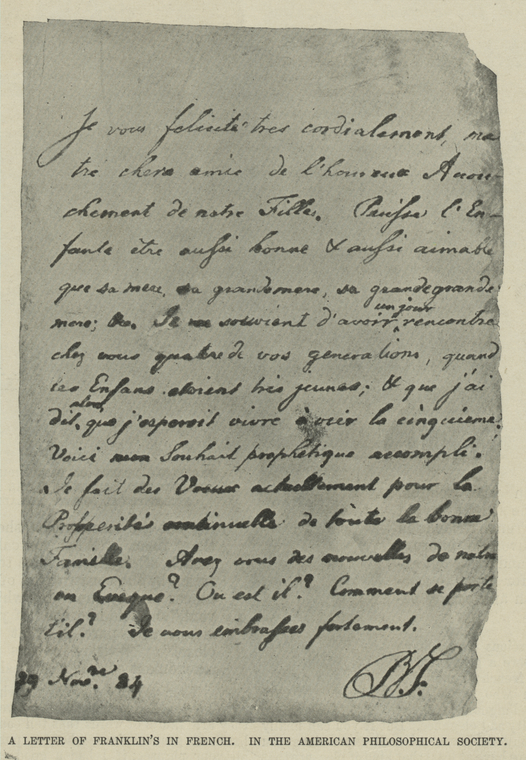 Je vous felicite tres cordialement, ma
tre chere amie de l'heureux Accou-
chement de notre Fille. Puisse l'En-
fante être aussi bonne & aussi aimable
que sa mere, sa grandemere, sa grande grande
mere; &c. Je me souvient d'avoir un jour rencontre
chez vous quatre de vos generations, quand
les Enfans etoient tres jeunes; & que j'ai
dit alors, que j'esperoit vivre à voir la cinquieme.
Voici mon Souhait prophetique accompli.
Je fait des Voeux actuellement pour la
Prosperité continuelle de toute la bonne
Famille. Avez vous des nouvelles de notre
Eveque? Ou est il? Comment se porte
til? Je vous embrasses fortement.
29 Novre. 84
B.F.
A LETTER OF FRANKLIN'S IN FRENCH. IN THE AMERICAN PHILOSOPHICAL SOCIETY.